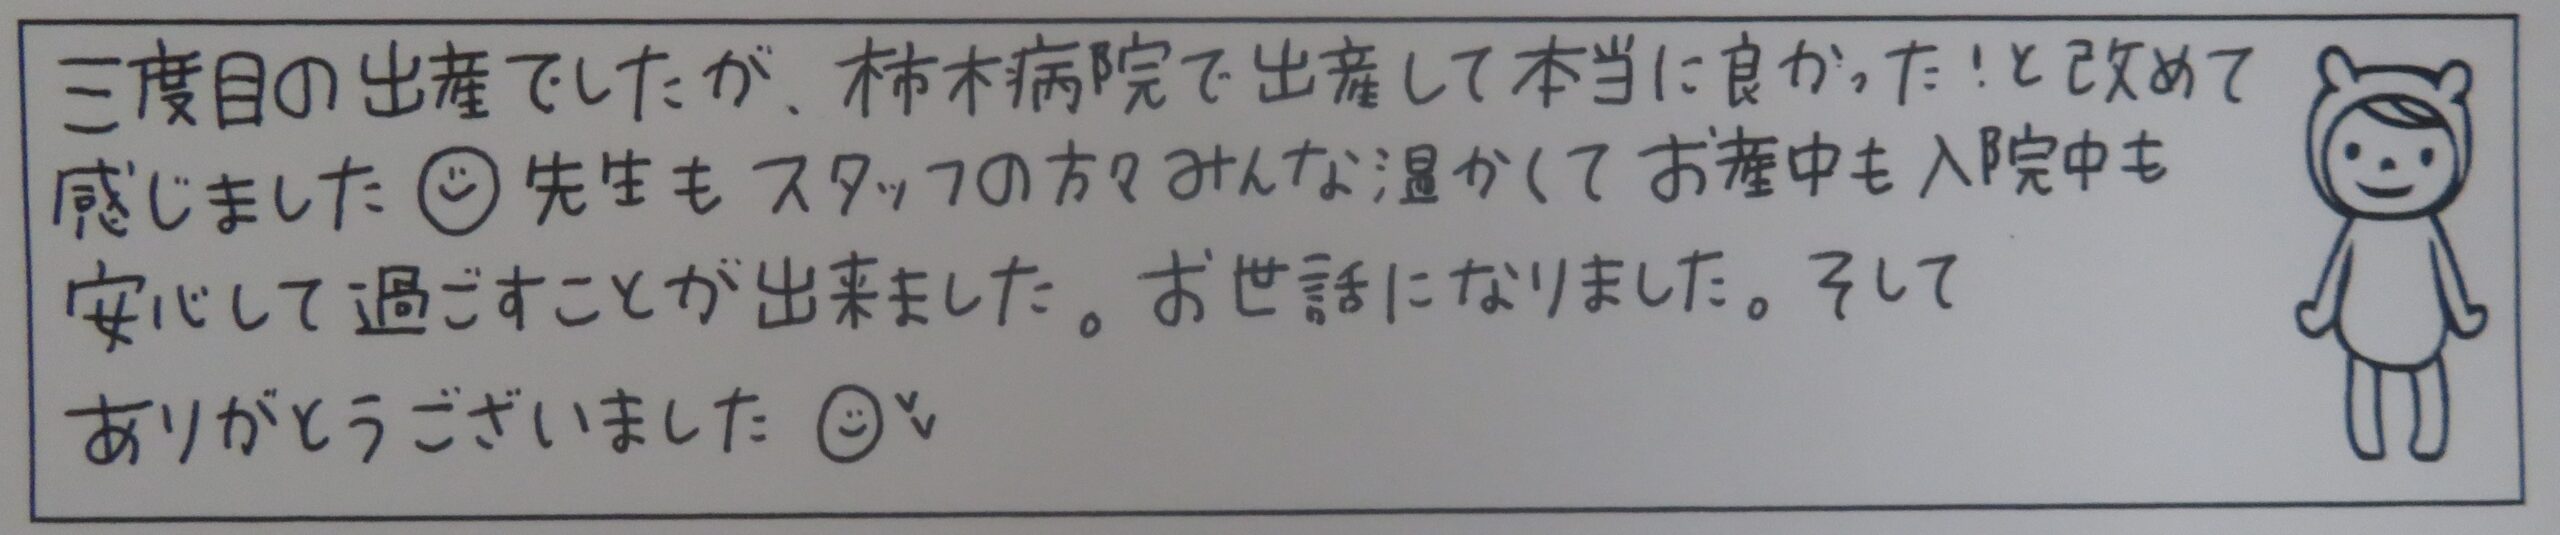 三度目の出産でしたが、柿木病院で出産して本当に良かった!と改めて
感じました☺先生もスタッフの方々みんな温かくてお産中も入院中も
安心して過ごすことが出来ました。お世話になりました。そして
ありがとうございました☺